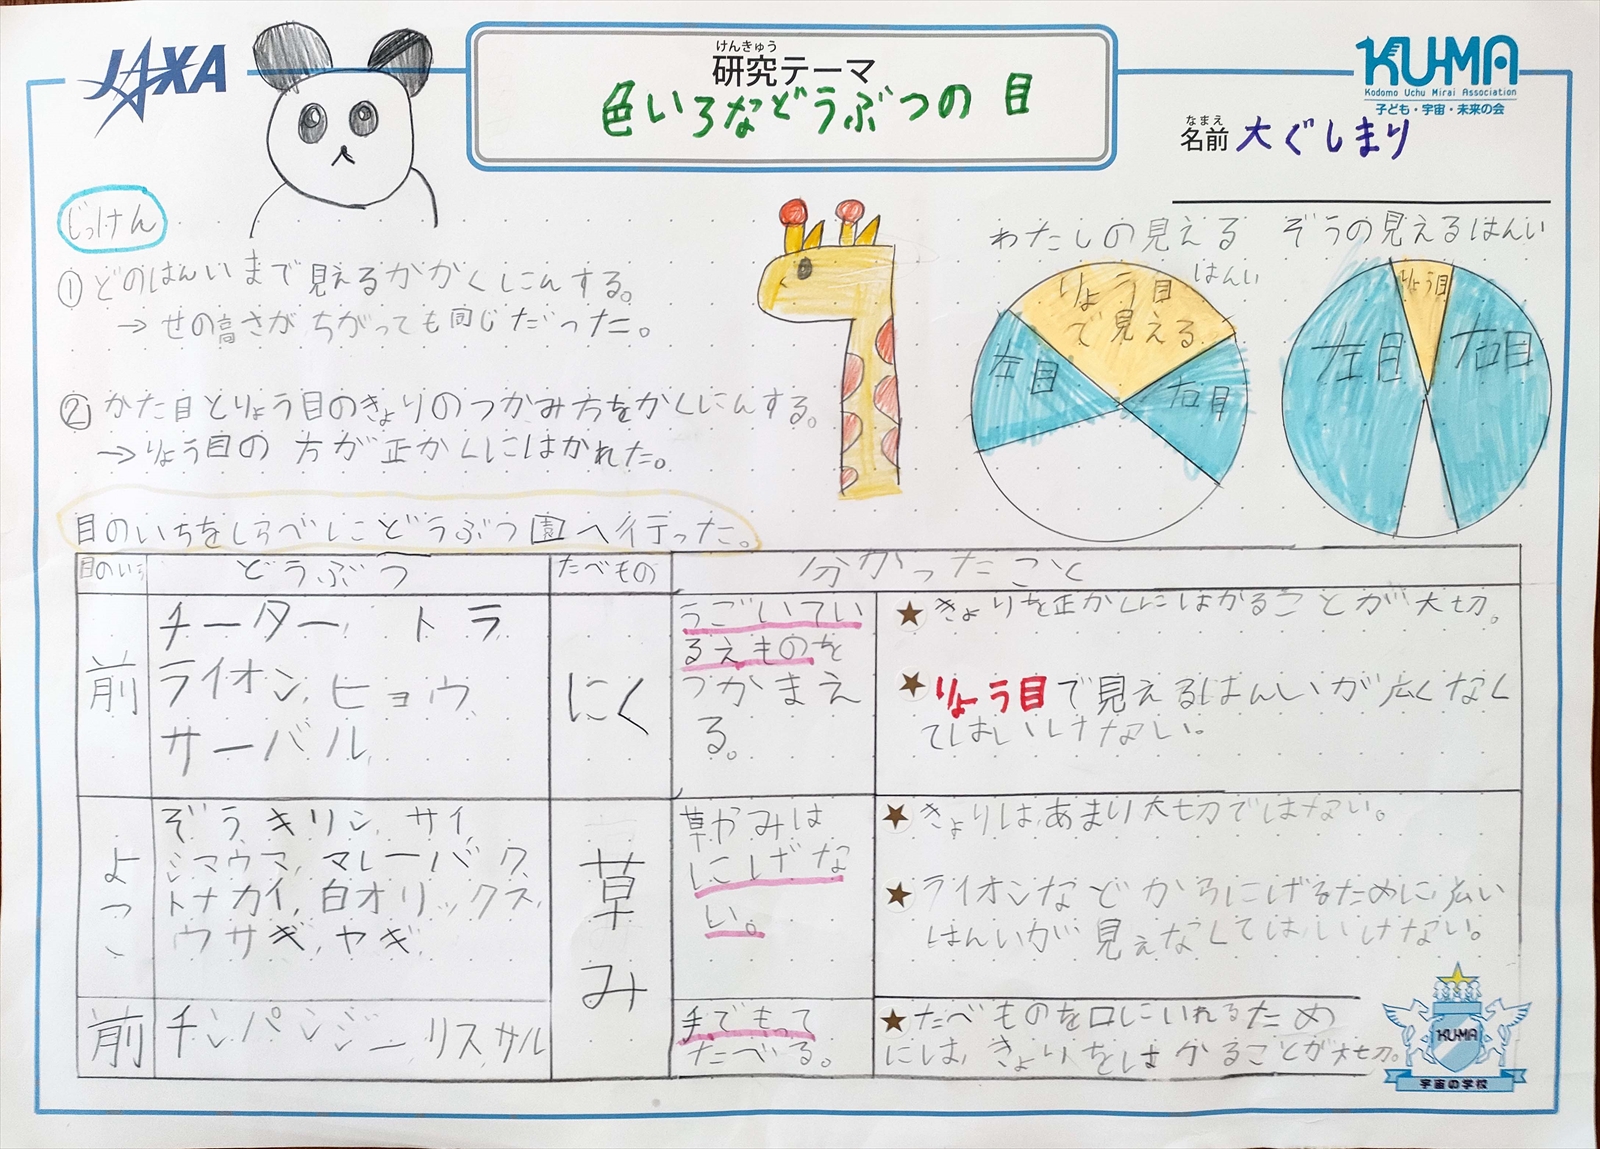 JAXA
けんきゅう
研究テーマ
色いろなどうぶつの目
KU-MA
Kodomo Uchu Mirai Association
子ども・宇宙・未来の会
なまえ
名前 大ぐしまり
じっけん
①どのはんいまで見えるかかくにんする。
→せの高さがちがっても同じだった。
②かた目とりょう目のきょりのつかみ方をかくにんする。
→りょう目の方が正かくにはかれた。
わたしの見える
はんい
りょう目
で見える
左目
右目
ぞうの見えるはんい
りょう目
左目
右目
目のいちをしらべにどうぶつ園へ行った。
目のいち
どうぶつ
たべもの
分かったこと
前
チーター、トラ
ライオン、ヒョウ
サーバル
にく
うごいてい
るえものを
つかまえ
る。
★きょりを正かくにはかることが大切。
★りょう目で見えるはんいが広くなく
てはいけない。
よこ
ぞう、キリン、サイ、
シマウマ、マレーバク、
トナカイ、白オリックス、
ウサギ、ヤギ
草
み
草やみは
にげな
い。
★きょりは、あまり大切ではない。
★ライオンなどからにげるために、広い
はんいが見えなくてはいけない。
前
チンパンジー、リスザル
手でもって
たべる。
★たべものを口にいれるため
には、きょりをはかることが大切。
KU-MA
宇宙の学校